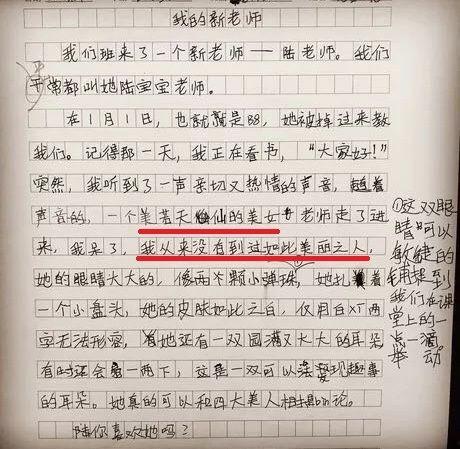 我的新老师
我们班来了一个新老师——陆老师。我们
平常都叫她陆宝宝老师。
在1月1日，也就是B8，她被掉过来教
我们。记得那一天，我正在看书，“大家好！”
突然，我听到了一声亲切又热情的声音，趁着
声音的，一个美若天仙的美女老师走了进
来，我呆了，我从来没有到过如此美丽之人，
她的眼睛大大的，像两颗小弹珠，她扎着
一个小盘头，她的皮肤如此之白，仅用白以两
字无法形容，有她还有一双圆满又大大的耳朵
有时还会一两下，这是一双可以发现趣事
的耳朵。她真的可以和四大美人相提论。
陆你喜欢她吗？
①这双眼
睛可以
敏健的
捕捉到
我们在课
堂上的一
点一滴。
举动